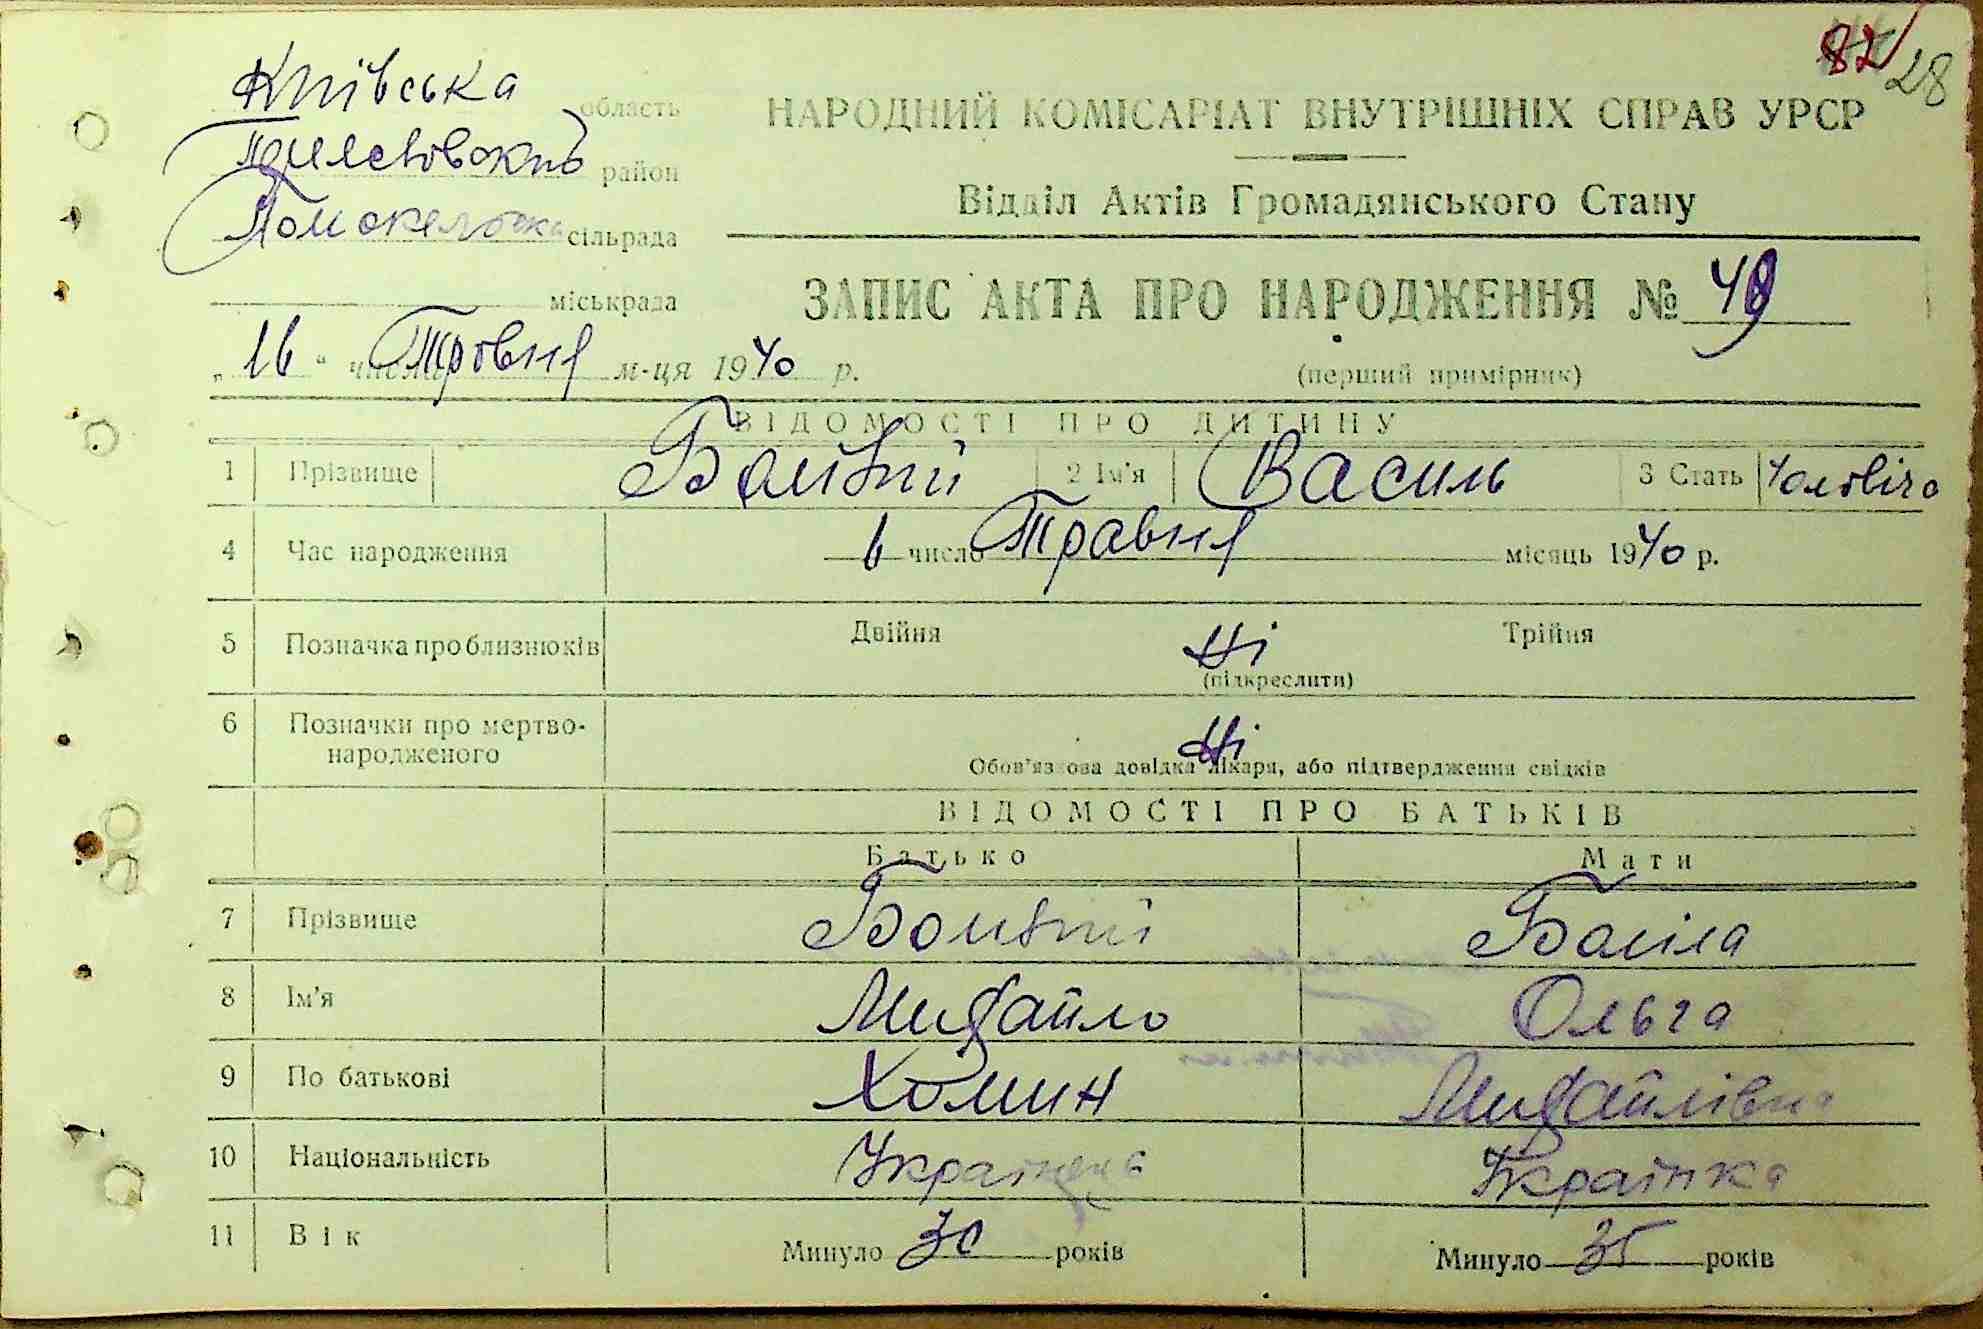 82 28
Київська область
район
сільрада
міськрада
НАРОДНИЙ КОМІСАРІАТ ВНУТРІШНІХ СПРАВ УРСР
Відділ Актів Громадянського Стану
ЗАПИС АКТА ПРО НАРОДЖЕННЯ № 49
(перший примірник)
„16“ числа Травня м-ця 1940 р.
ВІДОМОСТІ ПРО ДИТИНУ
1 Прізвище 2 Ім'я Василь 3 Стать
4 Час народження 6 число Травня місяць 1940 р.
5 Позначка про близнюків Двійня Ні Трійня
(підкреслити)
6 Позначки про мертво-
народженого Ні
Обов'язкова довідка лікаря, або підтвердження свідків
ВІДОМОСТІ ПРО БАТЬКІВ
Батько Мати
7 Прізвище
8 Ім'я Михайло Ольга
9 По батькові Хомин Михайлівна
10 Національність Українець Українка
11 Вік Минуло 30 років Минуло 35 років